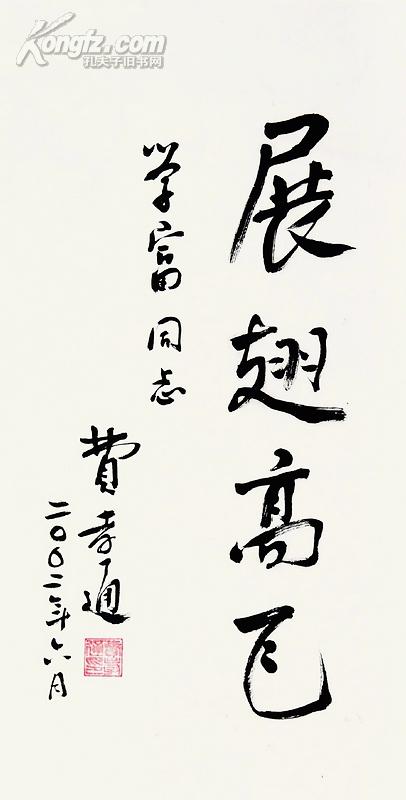 Kongfz.com
孔夫子旧书网
展翅高飞
学富同志
费孝通
二〇〇二年六月